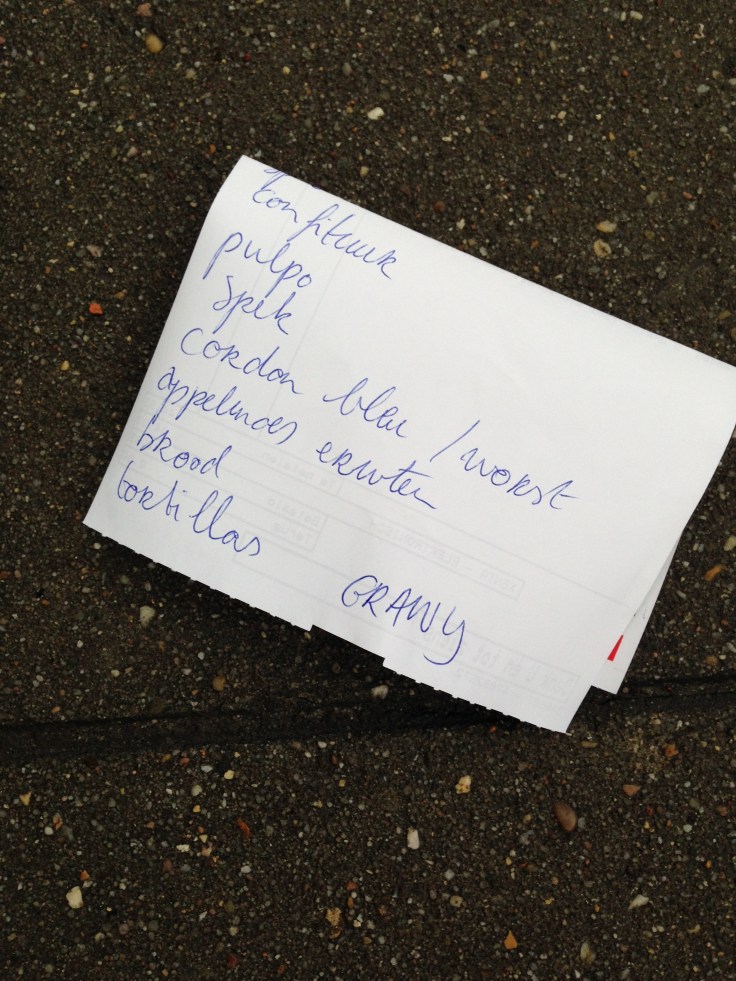 konfituur
pulpo
spek
cordon bleu / worst
appelmoes erwten
brood
tortillas
GRANY